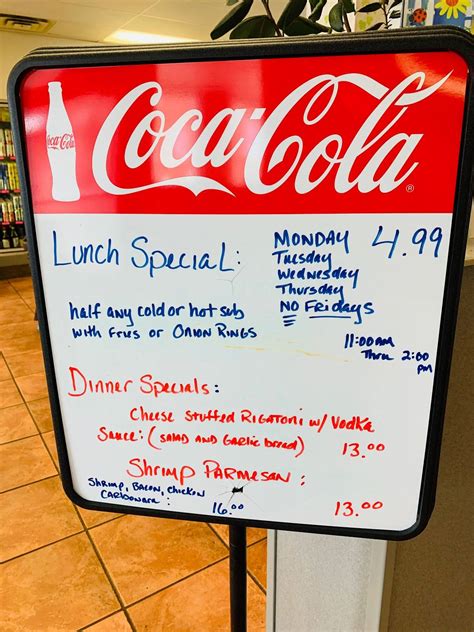 Coca-Cola
Coca-Cola®
Lunch Special:
MONDAY 4.99
Tuesday
Wednesday
Thursday
NO Fridays
11:00AM
Thru 2:00
PM
half any cold or hot sub
with Fries or Onion Rings
Dinner Specials:
Cheese Stuffed Rigatoni w/ Vodka
Sauce: (Salad and Garlic bread) 13.00
Shrimp Parmesan: 13.00
Shrimp, Bacon, Chicken
Carbonara: 16.00